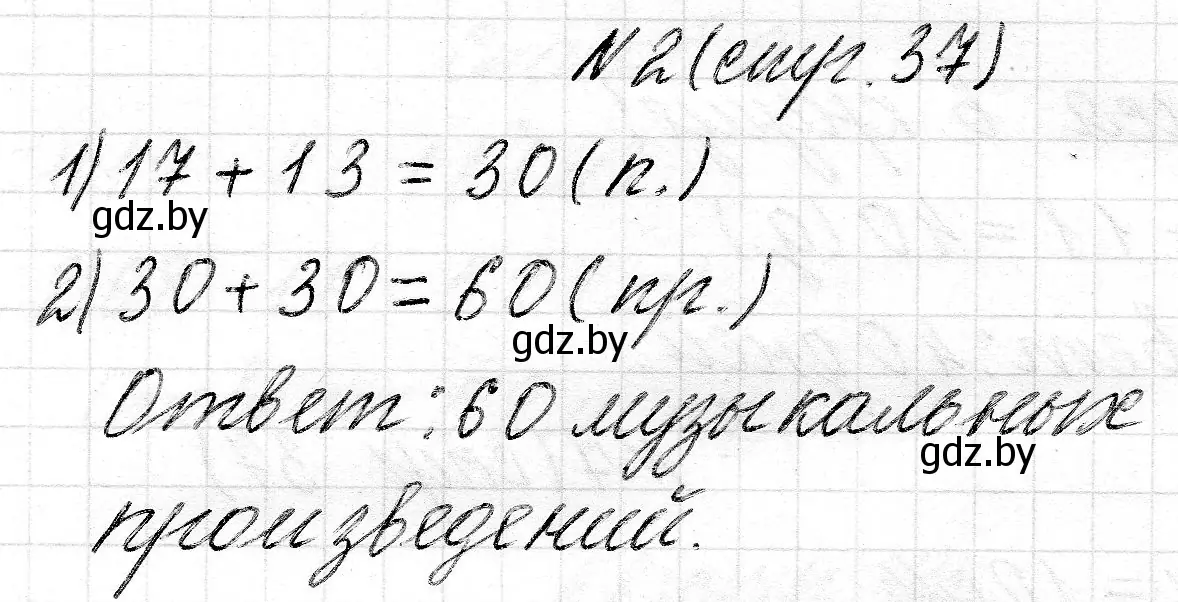 № 2 (стр. 37)
1) 17 + 13 = 30 (п.)
gdz.by
2) 30 + 30 = 60 (пр.)
gdz.by
Ответ: 60 музыкальных
gdz.by
произведений.